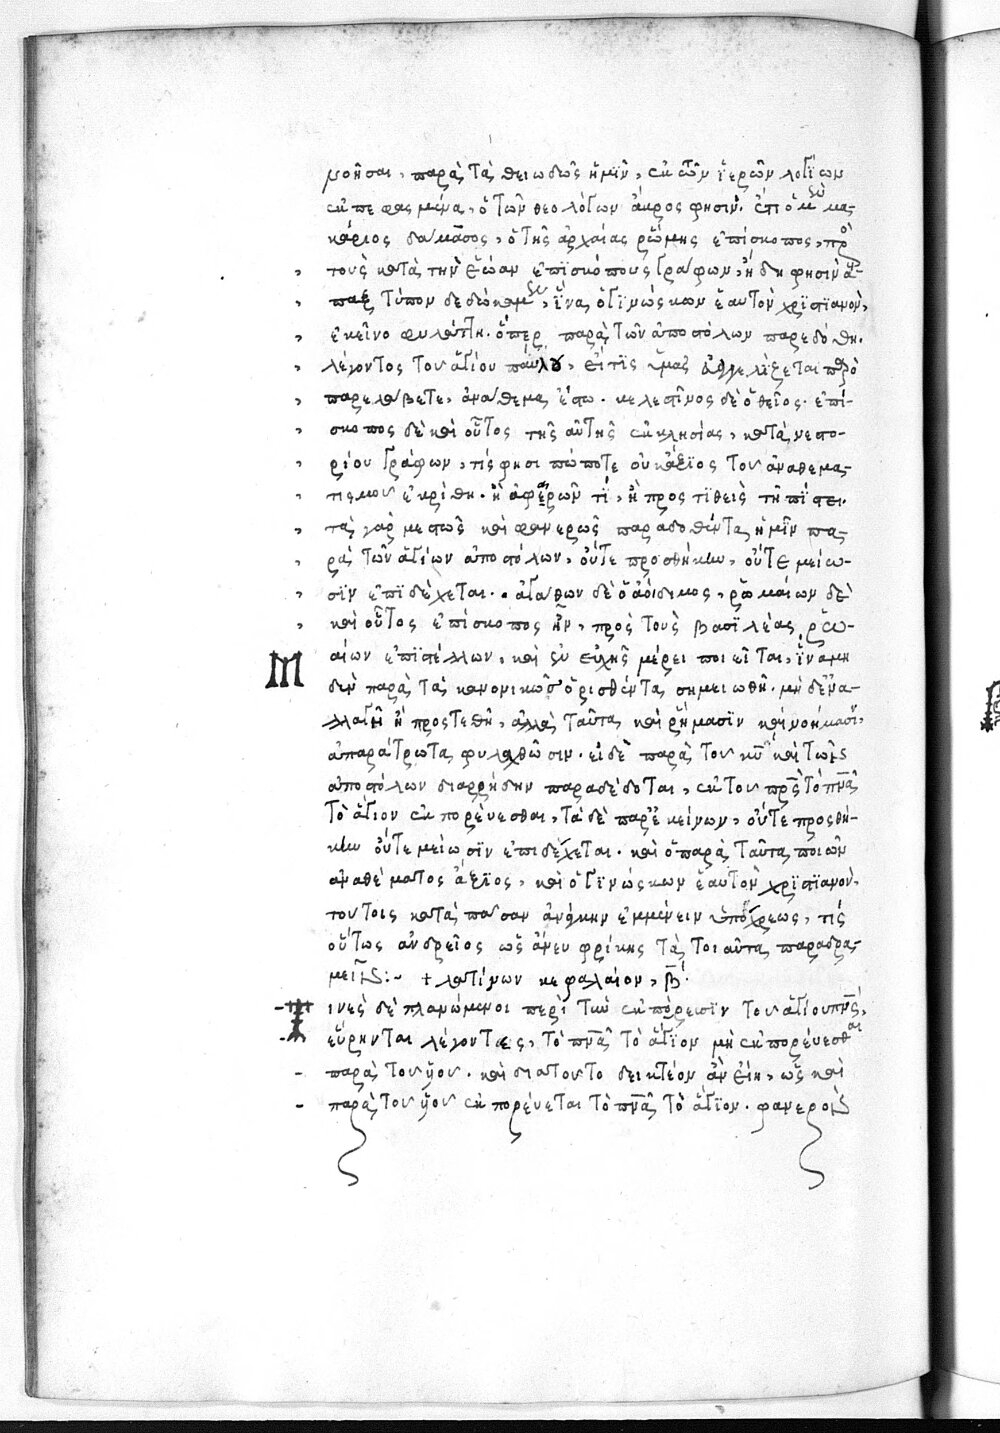 νοῆσαι, παρὰ τὰ θειωδῶς ἡμῖν, ἐκ τῶν ἱερῶν λογίων
ἐκπεφασμένα, ὁ τῶν θεολόγων ἄκρος φησίν. ἔτι ὁ μὲν μα-
κάριος δάμασος, ὁ τῆς ἀρχαίας ῥώμης ἐπίσκοπος, πρὸς
τοὺς κατὰ τὴν ἑῴαν ἐπισκόπους γράφων, ἤδη φησὶν ἅ-
παξ τύπον δεδώκαμεν, ἵνα ὁ γινώσκων ἑαυτὸν χριστιανὸν,
ἐκεῖνο φυλάττη. ὅπερ παρὰ τῶν ἀποστόλων παρεδόθη.
λέγοντος τοῦ ἁγίου παύλου, εἴ τις ὑμᾶς εὐαγγελίζεται παρ ὃ
παρελάβετε, ἀνάθεμα ἔστω. κελεστῖνος δὲ ὁ θεῖος. ἐπί-
σκοπος δὲ καὶ οὗτος τῆς αὐτῆς ἐκκλησίας, κατὰ νεστο-
ρίου γράφων, τίς φησι πώποτε οὐκ ἄξιος τοῦ ἀναθεμα-
τισμοῦ ἐκρίθη. ἢ ἀφαιρῶν τί, ἢ προστιθεὶς τῇ πίστει.
τὰ γὰρ μεστῶς καὶ φανερῶς παραδοθέντα ἡμῖν πα-
ρὰ τῶν ἁγίων ἀποστόλων, οὔτε προσθήκην, οὔτε μείω-
σιν ἐπιδέχεται. ἀγάθων δὲ ὁ ἀοίδιμος, ῥωμαίων δὲ
καὶ οὗτος ἐπίσκοπος ἦν, πρὸς τοὺς βασιλέας ῥω-
Μαίων ἐπιστέλλων, καὶ ἐν εὐχῆς μέρει ποιεῖται, ἵνα μη
δὲν παρὰ τὰ κανονικῶς ὁρισθέντα σημειωθῆ. μηδὲν ἐνα-
λλαγῆ ἢ προστεθῆ, ἀλλὰ ταῦτα καὶ ῥήμασιν καὶ νοήμασιν,
ἀπαράτρωτα φυλαχθῶσιν. εἰ δὲ παρὰ τοῦ κυ καὶ τῶν
ἀποστόλων διαρρήδην παραδέδοται, ἐκ τοῦ πρς τὸ πνα
τὸ ἅγιον ἐκπορεύεσθαι, τὰ δὲ παρ ἐκείνων, οὔτε προσθή-
κην οὔτε μείωσιν ἐπιδέχεται. καὶ ὁ παρὰ ταῦτα ποιῶν
ἀναθέματος ἄξιος, καὶ ὁ γινώσκων ἑαυτὸν χριστιανὸν,
τούτοις κατὰ πᾶσαν ἀνάγκην ἐμμένειν ὑπόχρεως, τίς
οὕτως ἀνδρεῖος ὡς ἄνευ φρίκης τὰ τοιαῦτα παραδρα-
μεῖν:- + λατίνων κεφάλαιον, β΄.
Τινὲς δὲ πλανώμενοι περὶ τὴν ἐκπόρευσιν τοῦ ἁγίου πνς,
εὕρηνται λέγοντες, τὸ πνα τὸ ἅγιον μὴ ἐκπορεύεσθαι
παρὰ τοῦ υἱοῦ. καὶ διὰ τοῦτο δεικτέον ἂν εἴη, ὡς καὶ
παρὰ τοῦ υἱοῦ ἐκπορεύεται τὸ πνα τὸ ἅγιον. φανερὸν